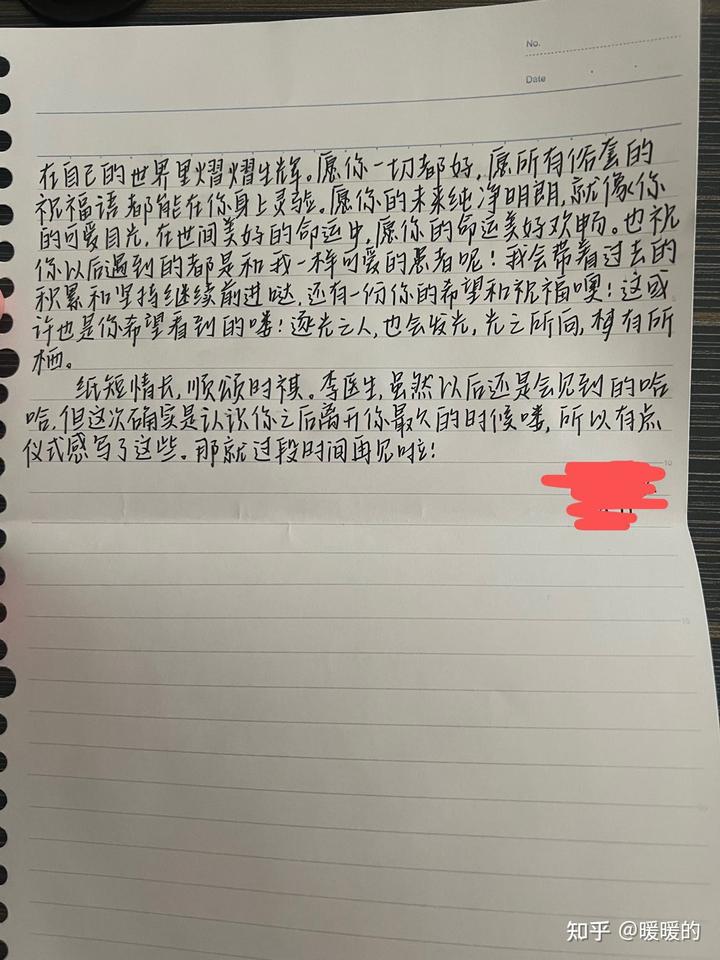 No.
Date
在自己的世界里熠熠生辉。愿你一切都好,愿所有俗套的
祝福语都能在你身上灵验。愿你的未来纯净明朗,就像你
的可爱目光,在世间美好的命运中,愿你的命运美好欢畅。也祝
你以后遇到的都是和我一样可爱的患者呢!我会带着过去的
积累和坚持继续前进哒,还有一份你的希望和祝福噢!这或
许也是你希望看到的喽!逐光之人,也会发光,光之所向,梦有所
栖。
纸短情长,顺颂时祺。李医生,虽然以后还是会见到的哈
哈,但这次确实是认识你之后离开你最久的时候喽,所以有点
仪式感写了这些。那就过段时间再见啦!
10
15
知乎 @暖暖的